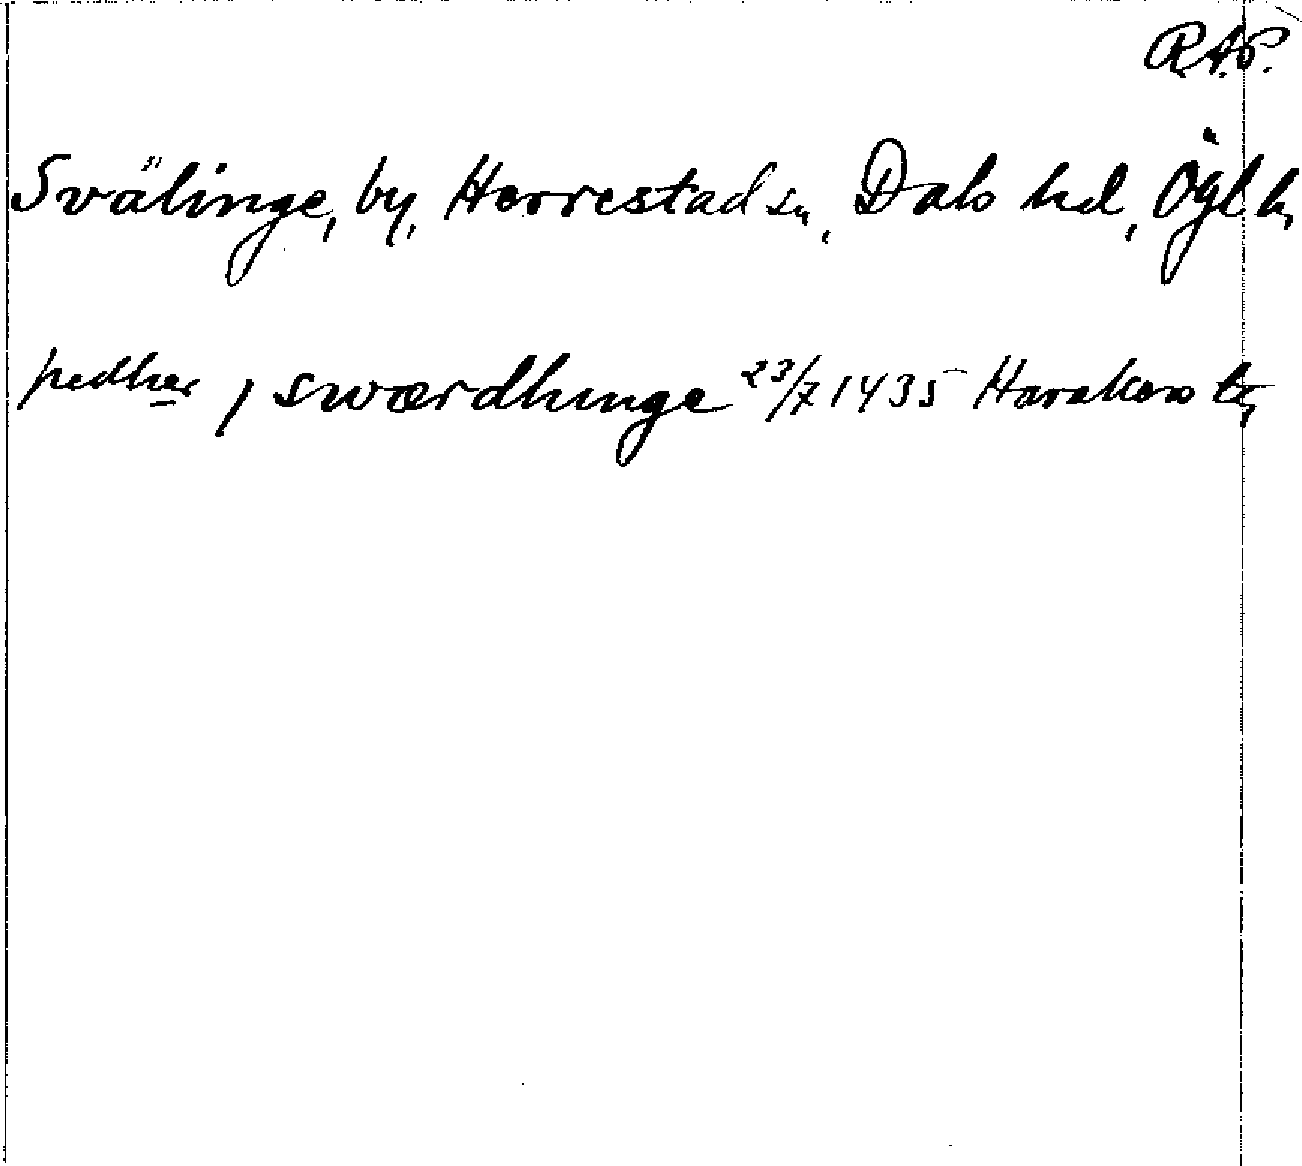 R.A.P.
Svälinge, by, Herrestad sn, Dals hd, Ögl k,
pedher j swærdhunge 23/7 1435 Harakers